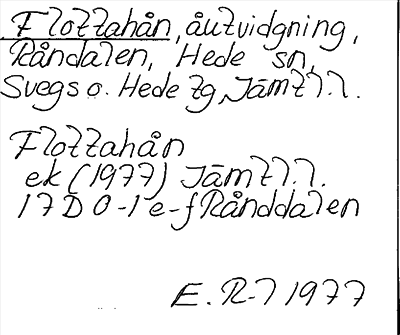 Flottahån, åutvidgning,
Råndalen, Hede sn,
Svegs o. Hede tg, Jämtl.l.
Flottahån
ek (1977) Jämtl.l.
17D 0-1 e-f Rånddalen
E. R-l 1977